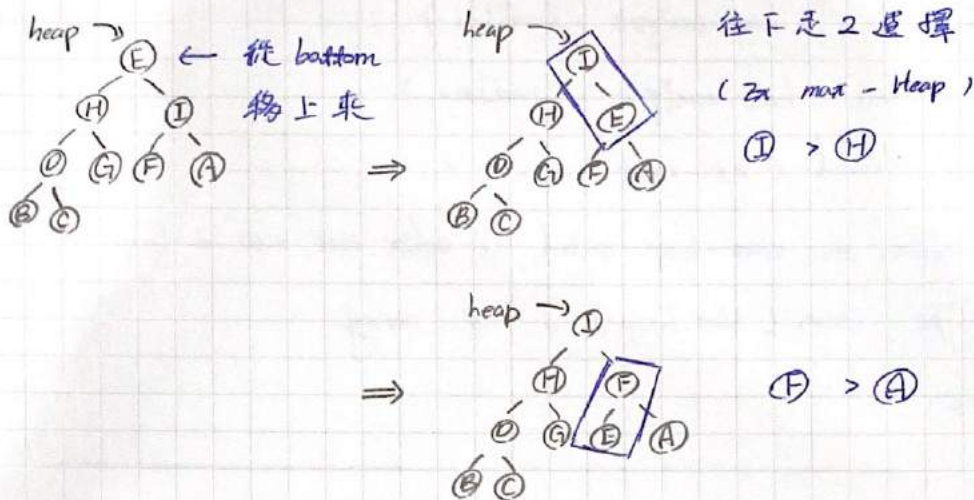 heap → Ⓔ ← 從 bottom
移上來
Ⓗ Ⓘ
Ⓓ Ⓖ Ⓕ Ⓐ
Ⓑ Ⓒ
⇒
heap → Ⓘ
Ⓗ Ⓔ
Ⓓ Ⓖ Ⓕ Ⓐ
Ⓑ Ⓒ
往下走 2 選擇
( max - Heap )
Ⓘ > Ⓗ
⇒
heap → Ⓘ
Ⓗ Ⓕ
Ⓓ Ⓖ Ⓔ Ⓐ
Ⓑ Ⓒ
Ⓕ > Ⓐ